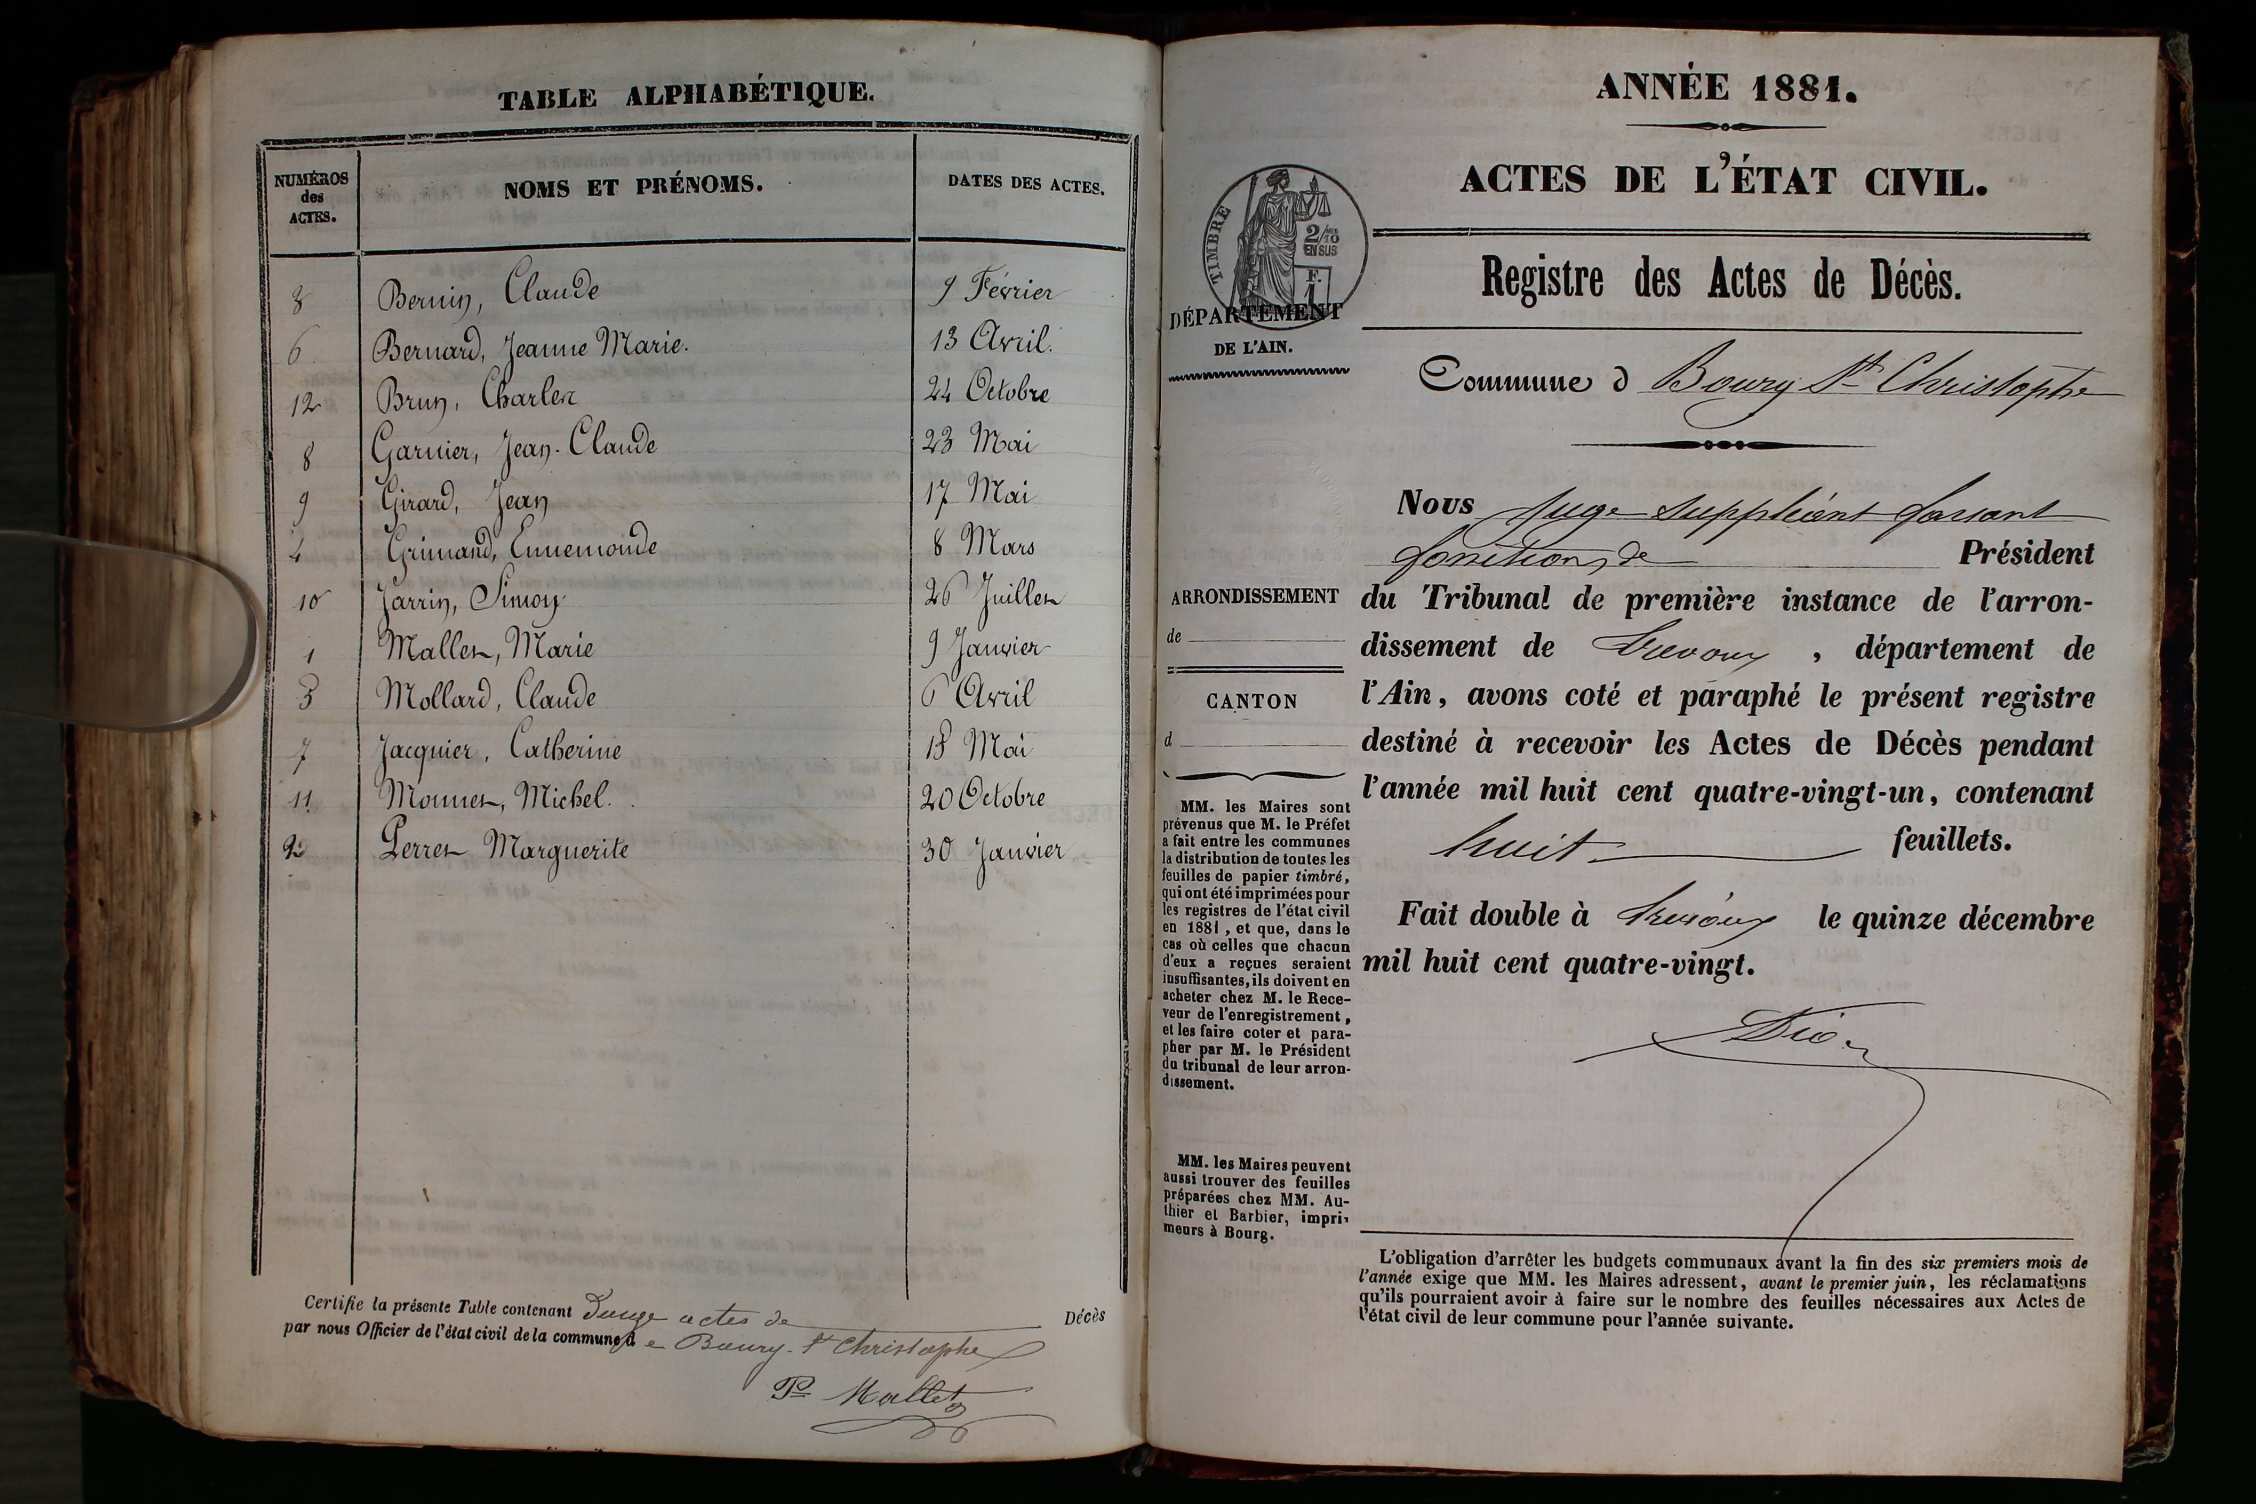 TABLE ALPHABÉTIQUE.
NUMÉROS des ACTES. NOMS ET PRÉNOMS. DATES DES ACTES.
3 Bernin, Claude 9 Février
6 Bernard, Jeanne Marie. 13 Avril.
12 Brun, Charles 24 Octobre
8 Garnier, Jean-Claude 23 Mai
9 Girard, Jean 17 Mai
4 Grimand, Ennemonde 8 Mars
10 Jarrin, Simon 26 Juillet
1 Mallet, Marie 9 Janvier
5 Mollard, Claude 6 Avril
7 Jacquier, Catherine 13 Mai
11 Monnet, Michel. 20 Octobre
2 Perret Marguerite 30 Janvier
Certifie la présente Table contenant Douze actes de Décès
par nous Officier de l'état civil de la commune de Boury-St Christophe
Pre Mallet
ANNÉE 1881.
ACTES DE L'ÉTAT CIVIL.
TIMBRE
2/10
EN SUS
F.
1
DÉPARTEMENT
DE L'AIN.
Registre des Actes de Décès.
Commune d Boury St Christophe
Nous Juge suppléant faisant
fonctions de Président
du Tribunal de première instance de l'arron-
dissement de Trevoux, département de
l'Ain, avons coté et paraphé le présent registre
destiné à recevoir les Actes de Décès pendant
l'année mil huit cent quatre-vingt-un, contenant
huit feuillets.
Fait double à Trévoux le quinze décembre
mil huit cent quatre-vingt.
ARRONDISSEMENT
de
CANTON
d
MM. les Maires sont
prévenus que M. le Préfet
a fait entre les communes
la distribution de toutes les
feuilles de papier timbré,
qui ont été imprimées pour
les registres de l'état civil
en 1881, et que, dans le
cas où celles que chacun
d'eux a reçues seraient
insuffisantes, ils doivent en
acheter chez M. le Rece-
veur de l'enregistrement,
et les faire coter et para-
pher par M. le Président
du tribunal de leur arron-
dissement.
MM. les Maires peuvent
aussi trouver des feuilles
préparées chez MM. Au-
thier et Barbier, impri-
meurs à Bourg.
L'obligation d'arrêter les budgets communaux avant la fin des six premiers mois de
l'année exige que MM. les Maires adressent, avant le premier juin, les réclamations
qu'ils pourraient avoir à faire sur le nombre des feuilles nécessaires aux Actes de
l'état civil de leur commune pour l'année suivante.